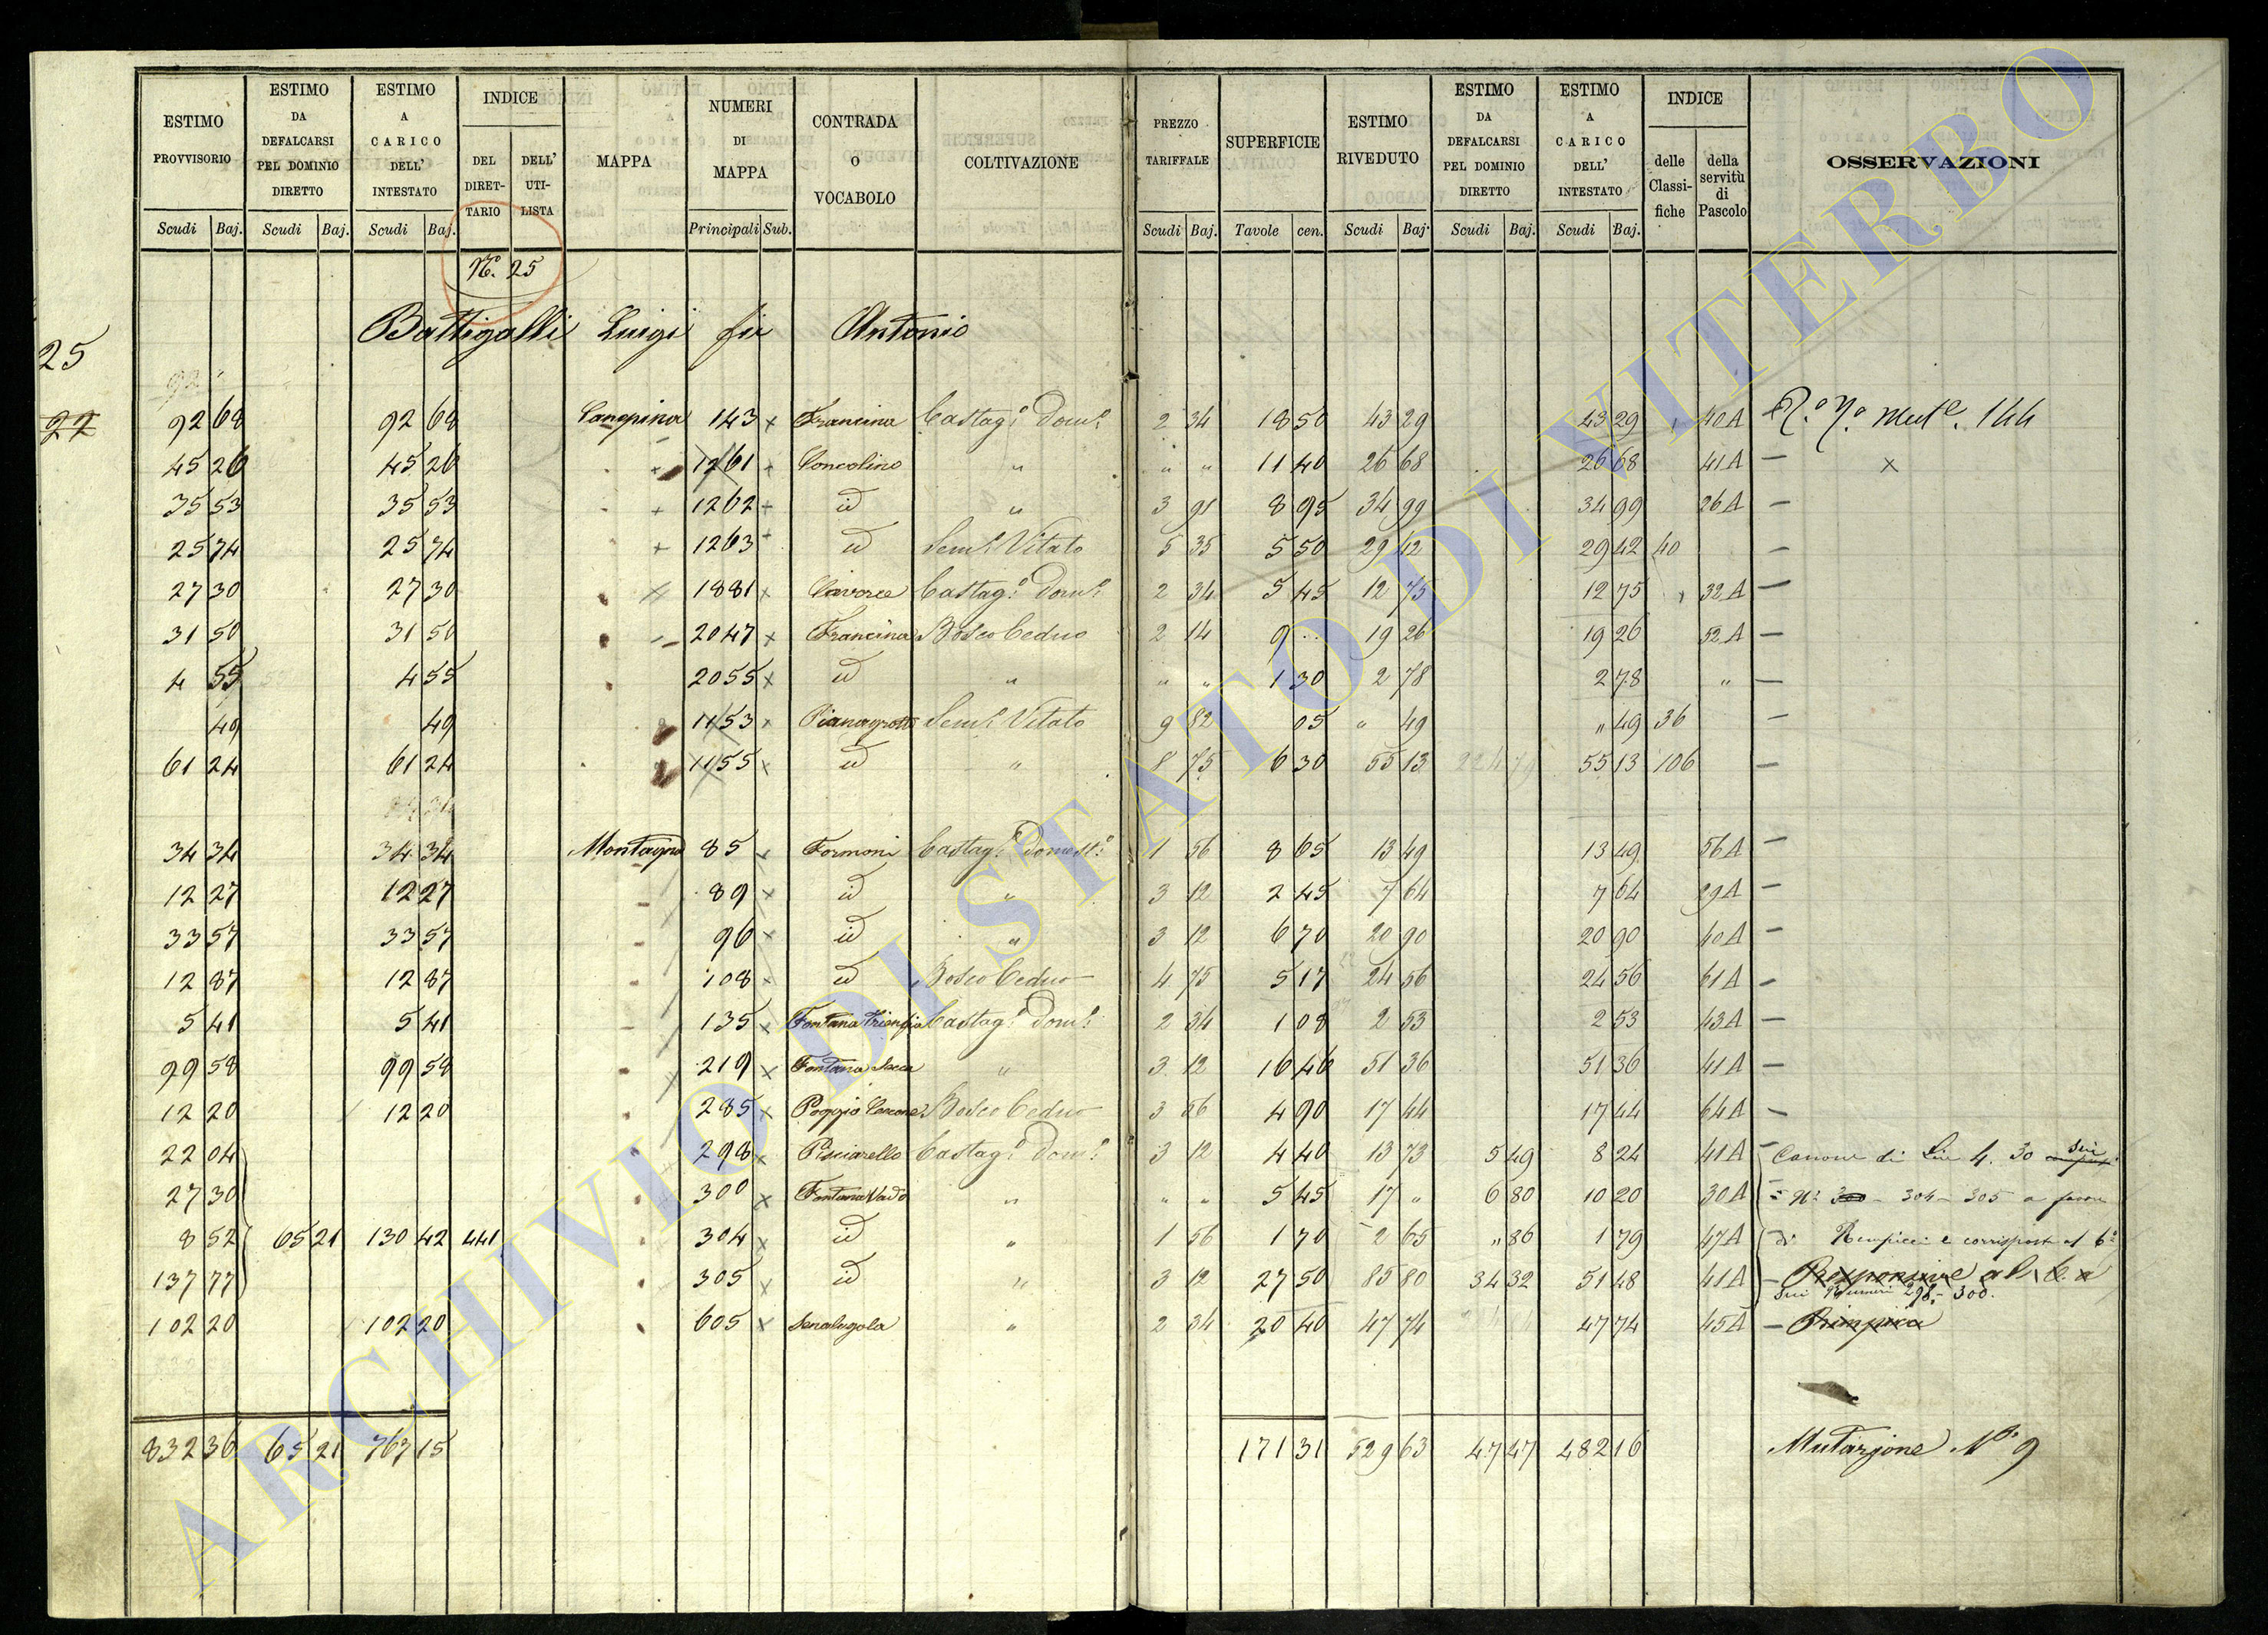 ESTIMO PROVVISORIO | ESTIMO DA DEFALCARSI PEL DOMINIO DIRETTO | ESTIMO A CARICO DELL' INTESTATO | INDICE DEL DIRETTARIO | DELL' UTILISTA | MAPPA | NUMERI DI MAPPA | CONTRADA O VOCABOLO | COLTIVAZIONE | PREZZO TARIFFALE | SUPERFICIE | ESTIMO RIVEDUTO | ESTIMO DA DEFALCARSI PEL DOMINIO DIRETTO | ESTIMO A CARICO DELL' INTESTATO | INDICE delle Classifiche | della servitù di Pascolo | OSSERVAZIONI
Scudi Baj. Scudi Baj. Scudi Baj. Principali Sub. Scudi Baj. Tavole cen. Scudi Baj. Scudi Baj. Scudi Baj.
N.º 25
Battigalli Luigi fu Antonio
25
22
92 68 92 68 Canepina 143 x Francina Castag.º Dom.º 2 34 18 50 43 29 43 29 40 A 144
45 26 45 26 1261 Concolino " " " 11 40 26 68 26 68 41 A — x
35 53 35 53 1262 id " 3 91 8 95 34 99 34 99 26 A —
25 74 25 74 1263 id Sem.º Vitato 5 35 5 50 29 42 29 42 40 —
27 30 27 30 1881 x Castag.º Dom.º 2 34 5 45 12 75 12 75 32 A —
31 50 31 50 2047 x Francina Bosco Ceduo 2 14 9 .. 19 26 19 26 52 A —
4 55 4 55 2055 x id " " " 1 30 2 78 2 78 " —
49 49 1153 x Sem.º Vitato 9 82 05 " 49 " 49 36 —
61 24 61 24 1155 x id " 8 75 6 30 55 13 55 13 106 —
34 34 34 34 Montagna 85 x Formoni Castag.º Domest.º 1 56 8 65 13 49 13 49 56 A —
12 27 12 27 89 x id " 3 12 2 45 7 64 7 64 29 A —
33 57 33 57 96 x id " 3 12 6 70 20 90 20 90 40 A —
12 87 12 87 108 x id Bosco Ceduo 4 75 5 17 24 56 24 56 61 A —
5 41 5 41 135 x Fontana Castag.º Dom.º 2 34 1 08 2 53 2 53 43 A —
99 58 99 58 219 x Fontana Secca " 3 12 16 46 51 36 51 36 41 A —
12 20 12 20 285 x Poggio Bosco Ceduo 3 56 4 90 17 44 17 44 64 A —
22 04 298 x Pisciarello Castag.º Dom.º 3 12 4 40 13 73 5 49 8 24 41 A Canone di Lire 4. 30 sui
27 30 300 x Fontana Vado " " " 5 45 17 " 6 80 10 20 30 A N.i 300 - 304 - 305 a favore
8 52 65 21 130 42 441 304 x id " 1 56 1 70 2 65 " 86 1 79 47 A di e corrisposta al 6.º
137 77 305 x id " 3 12 27 50 85 80 34 32 51 48 41 A —
sui Numeri 298 - 300.
102 20 102 20 605 x " 2 34 20 40 47 74 47 74 45 A —
832 36 65 21 767 15 171 31 529 63 47 47 482 16 Mutazione N.º 9
ARCHIVIO DI STATO DI VITERBO